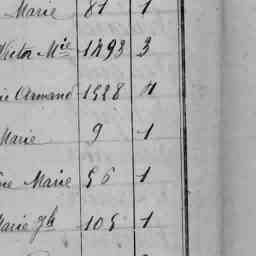 Marie 81 1
Victor Mie 1293 3
Armand 1528 4
Marie 9 1
Marie 56 1
Marie Jh 105 1